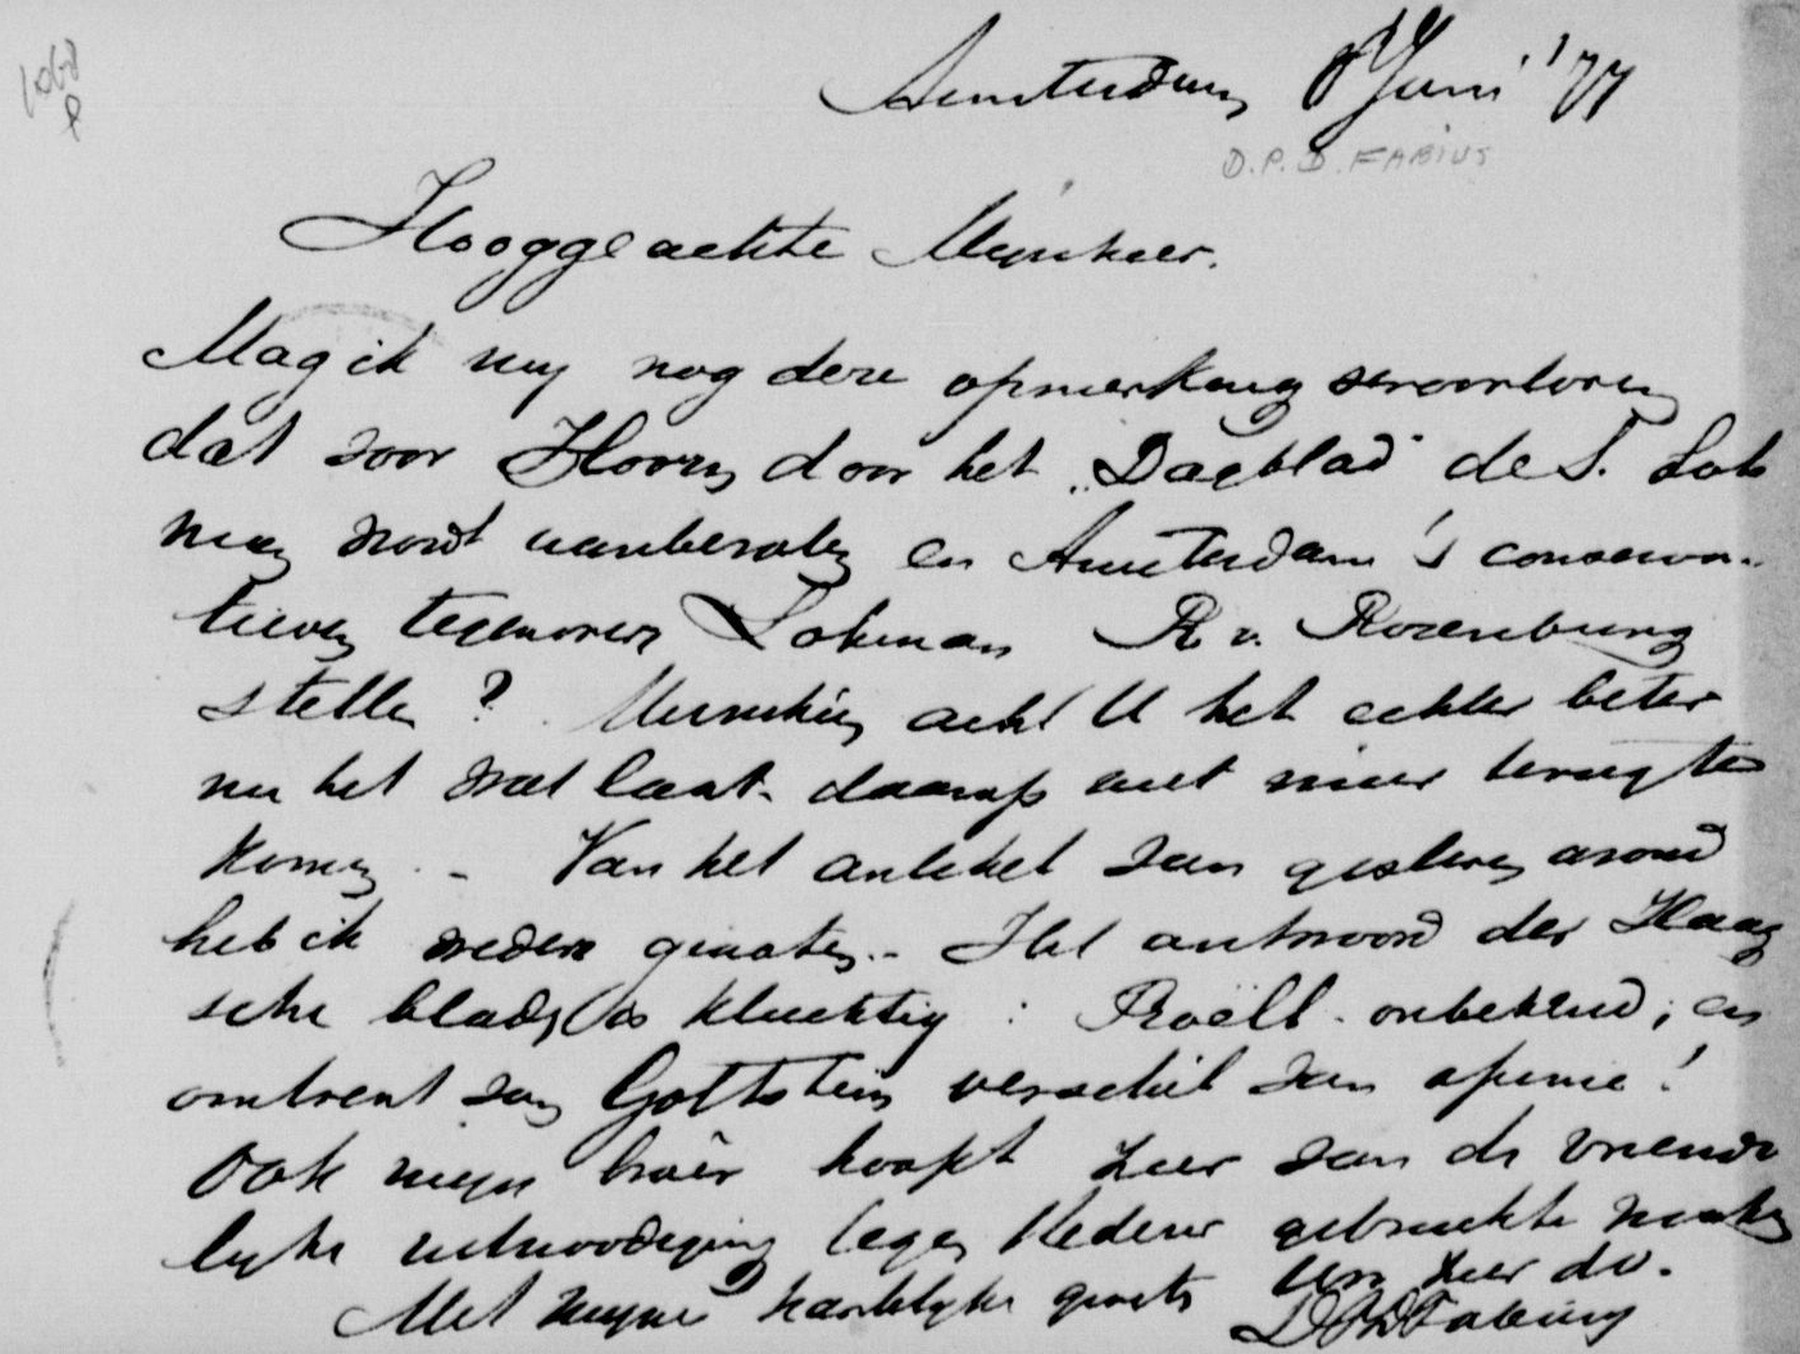 1068
p
Amsterdam 8 Juni '77
D.P.D. FABIUS
Hooggeachte Mijnheer.
Mag ik mij nog deze opmerking veroorloven
dat voor Hoorn door het „Dagblad" de S. Loh
man wordt aanbevolen en Amsterdam's conserva-
tieven tegenover Lohman R. v. Rozenburg
stellen? Misschien acht U het echter beter
nu het wat laat daarop niet meer terug te
komen. - Van het artikel van gisteren avond
heb ik weder genoten. - Het antwoord der Haag
sche bladen is kluchtig: Roëll onbekend; en
omtrent van Goltstein verschil van opinie!
Ook mijn broêr hoopt zeer van de vriende
lijke uitnoodiging tegen gebruik te maken
Met mijne hartelijke groets Uw zeer dv.
DPDFabius